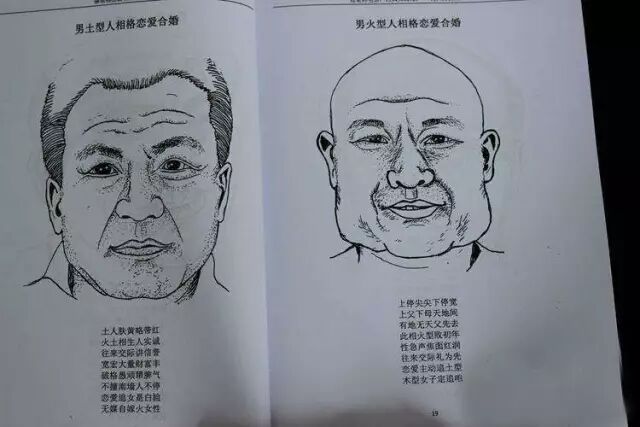 男土型人相格恋爱合婚
土人肤黄略带红
火土相生人实诚
往来交际讲信誉
宽宏大量财富丰
破格愚顽犟脾气
不撞南墙人不停
恋爱追女是白搭
无媒自嫁火女性
男火型人相格恋爱合婚
上停尖尖下停宽
上父下母天地间
有地无天父先去
此相火型败初年
性急声焦面红润
往来交际礼为先
恋爱主动追土型
木型女子定追咱
19